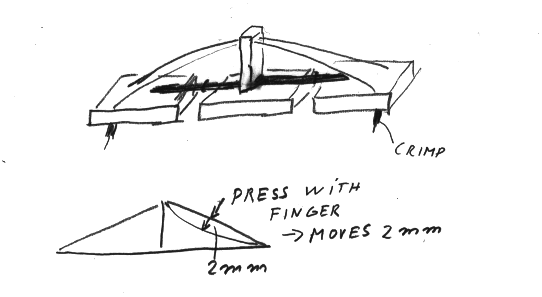 CRIMP
PRESS WITH
FINGER
→ MOVES 2mm
2mm